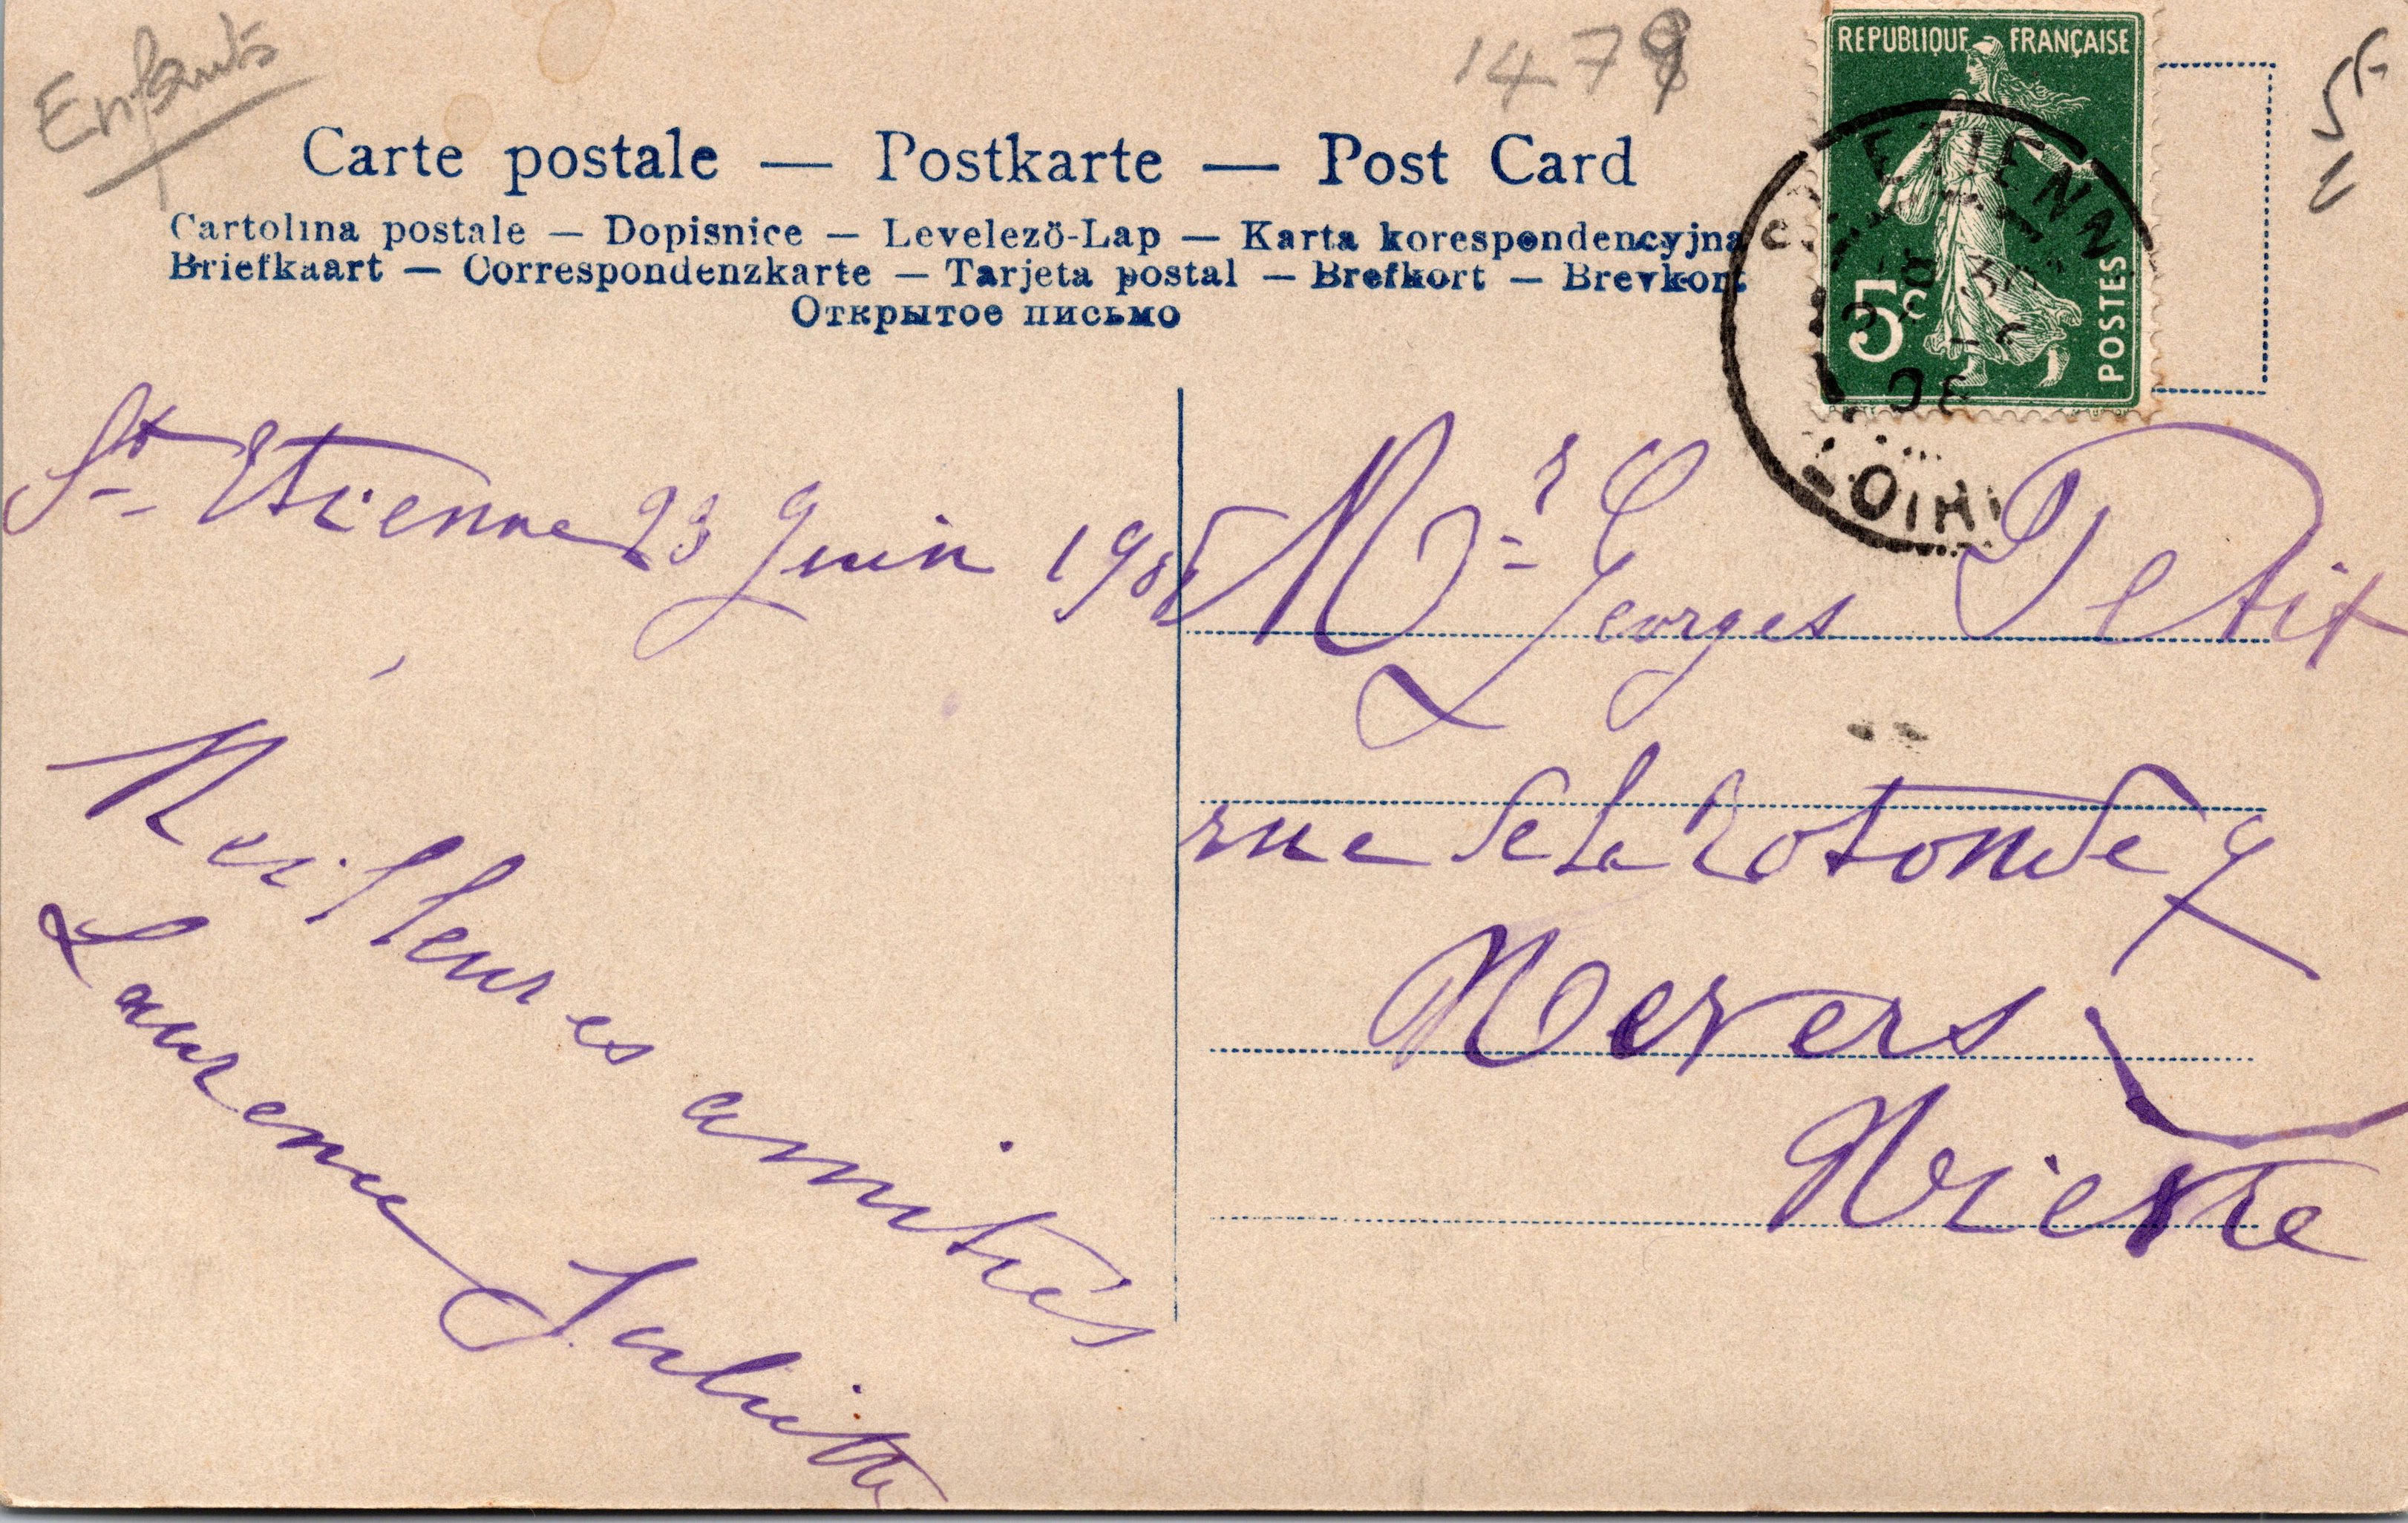 Enfants
147
REPUBLIQUE FRANÇAISE
5c
POSTES
ETIENN
Carte postale — Postkarte — Post Card
Cartolina postale — Dopisnice — Levelezö-Lap — Karta korespondencyjna
Briefkaart — Correspondenzkarte — Tarjeta postal — Brefkort — Brevkort
Открытое письмо
St Etienne 23 Juin 190
Meilleures amitiés
Laurence Juliette
Mr Georges Petit
rue de la Rotonde 9
Nevers
Nièvre